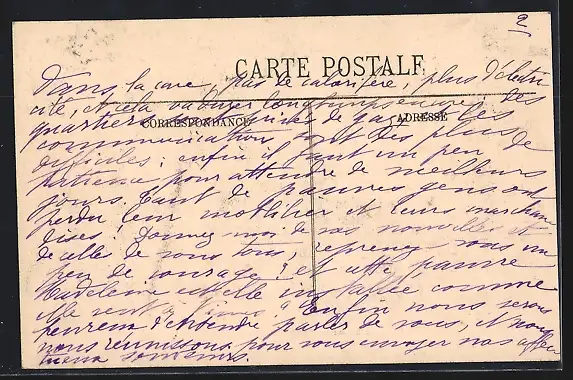 2
CARTE POSTALE
dans la cave, pas de calorifère, plus d'électri
cité, et cela va durer longtemps encore; des
quartiers de gaz les
CORRESPONDANCE
ADRESSE
communications sont des plus
difficiles; enfin il faut un peu de
patience pour attendre de meilleurs
jours. Tant de pauvres gens ont
perdu leur mobilier et leurs marchan
dises! Donnez moi de vos nouvelles et
de celles de vous tous, reprenez vous un
peu de courage? et cette pauvre
Madeleine est elle installée comme
elle Enfin nous serons
heureux d'entendre parler de vous, et nous
nous réunissons pour vous envoyer nos affec
tueux souvenirs.